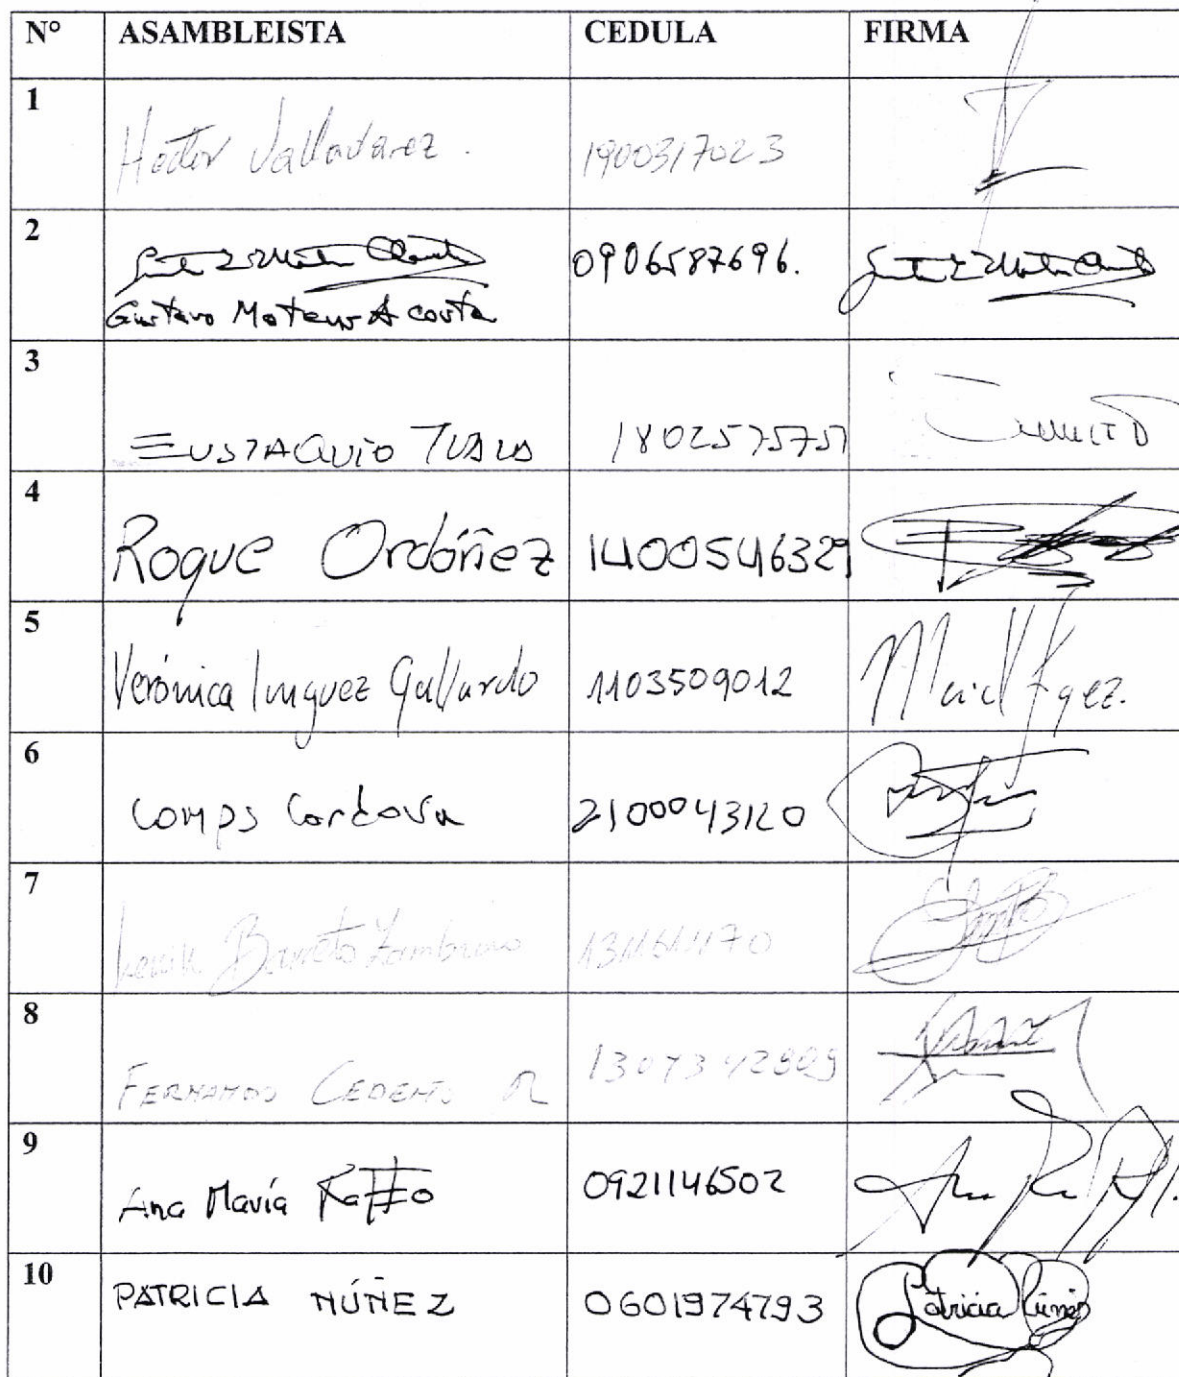 N° ASAMBLEISTA CEDULA FIRMA
1 Hector Valladarez. 1900317023
2 0906587696.
Gustavo Mateus Acosta
3 EUSTAQUIO TUALA 1802575757
4 Roque Ordóñez 1400546329
5 Verónica Iñiguez Gallardo 1103509012
6 Comps Cordova 2100043120
7 Barreto Zambrano
8 FERNANDO CEDEÑO R 1307342809
9 Ana María Raffo 0921146502
10 PATRICIA NÚÑEZ 0601974793 Patricia Núñez